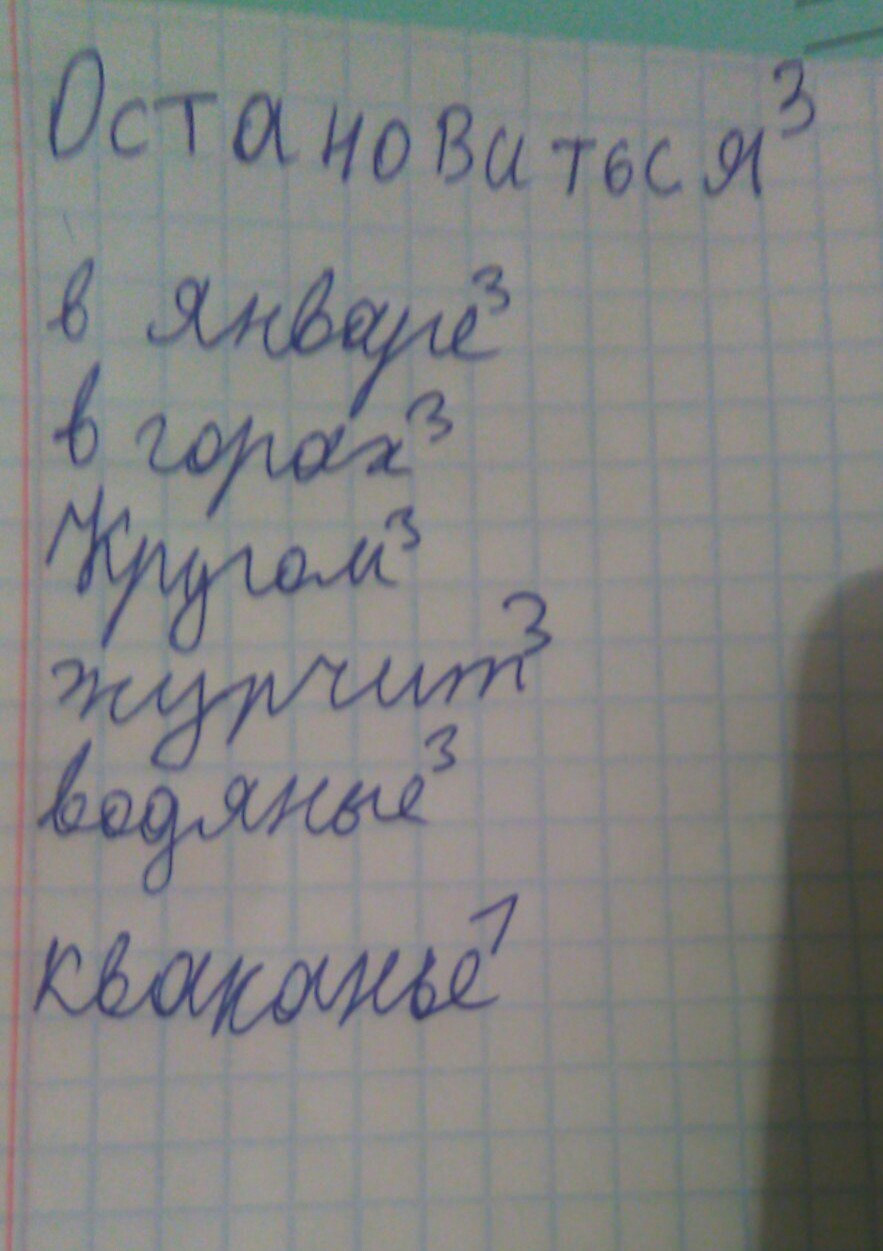 Остановиться³
в январе³
в горах³
Кругом³
журчит³
водяные³
кваканье¹